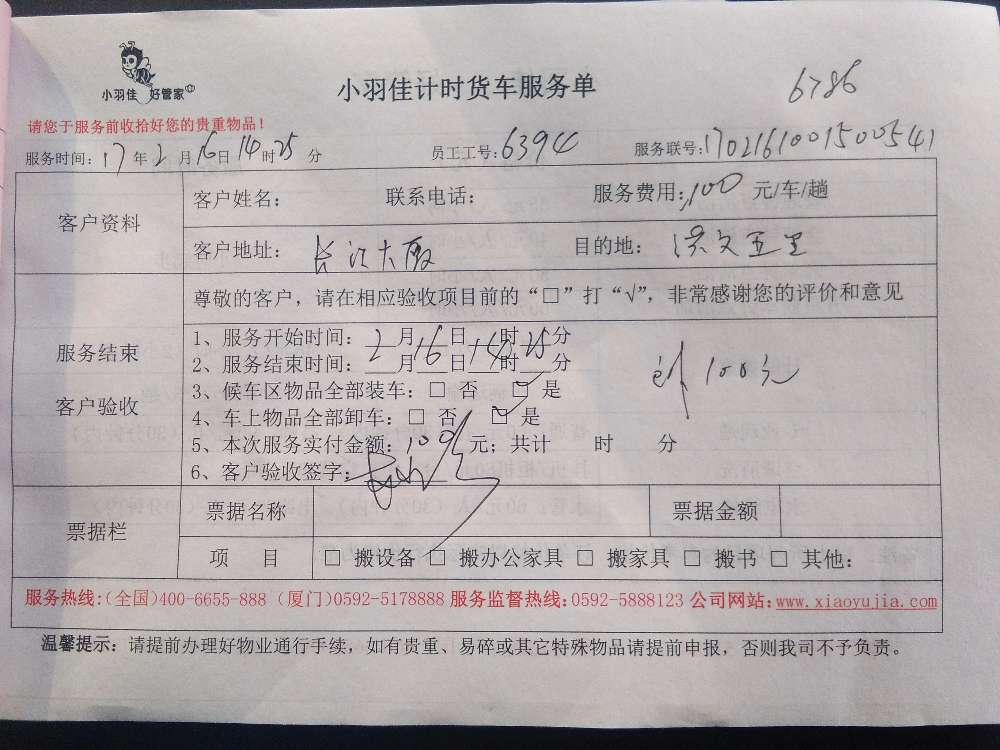 小羽佳 好管家
小羽佳计时货车服务单
6786
请您于服务前收拾好您的贵重物品!
服务时间: 17年2月16日14时25分 员工工号: 6394 服务联号: 1702161001500541
客户资料
客户姓名: 联系电话: 服务费用: 100 元/车/趟
客户地址: 长江大厦 目的地: 洪文五里
服务结束
客户验收
尊敬的客户，请在相应验收项目前的“□”打“√”，非常感谢您的评价和意见
1、服务开始时间: 月 日 时 分
2、服务结束时间: 2月16日14时25分
3、候车区物品全部装车: □ 否 ☑ 是
4、车上物品全部卸车: □ 否 ☑ 是
5、本次服务实付金额: 100元; 共计 时 分
6、客户验收签字:
100元
票据栏
票据名称 票据金额
项 目 □ 搬设备 □ 搬办公家具 □ 搬家具 □ 搬书 □ 其他:
服务热线:(全国)400-6655-888 (厦门)0592-5178888 服务监督热线:0592-5888123 公司网站:www.xiaoyujia.com
温馨提示: 请提前办理好物业通行手续，如有贵重、易碎或其它特殊物品请提前申报，否则我司不予负责。